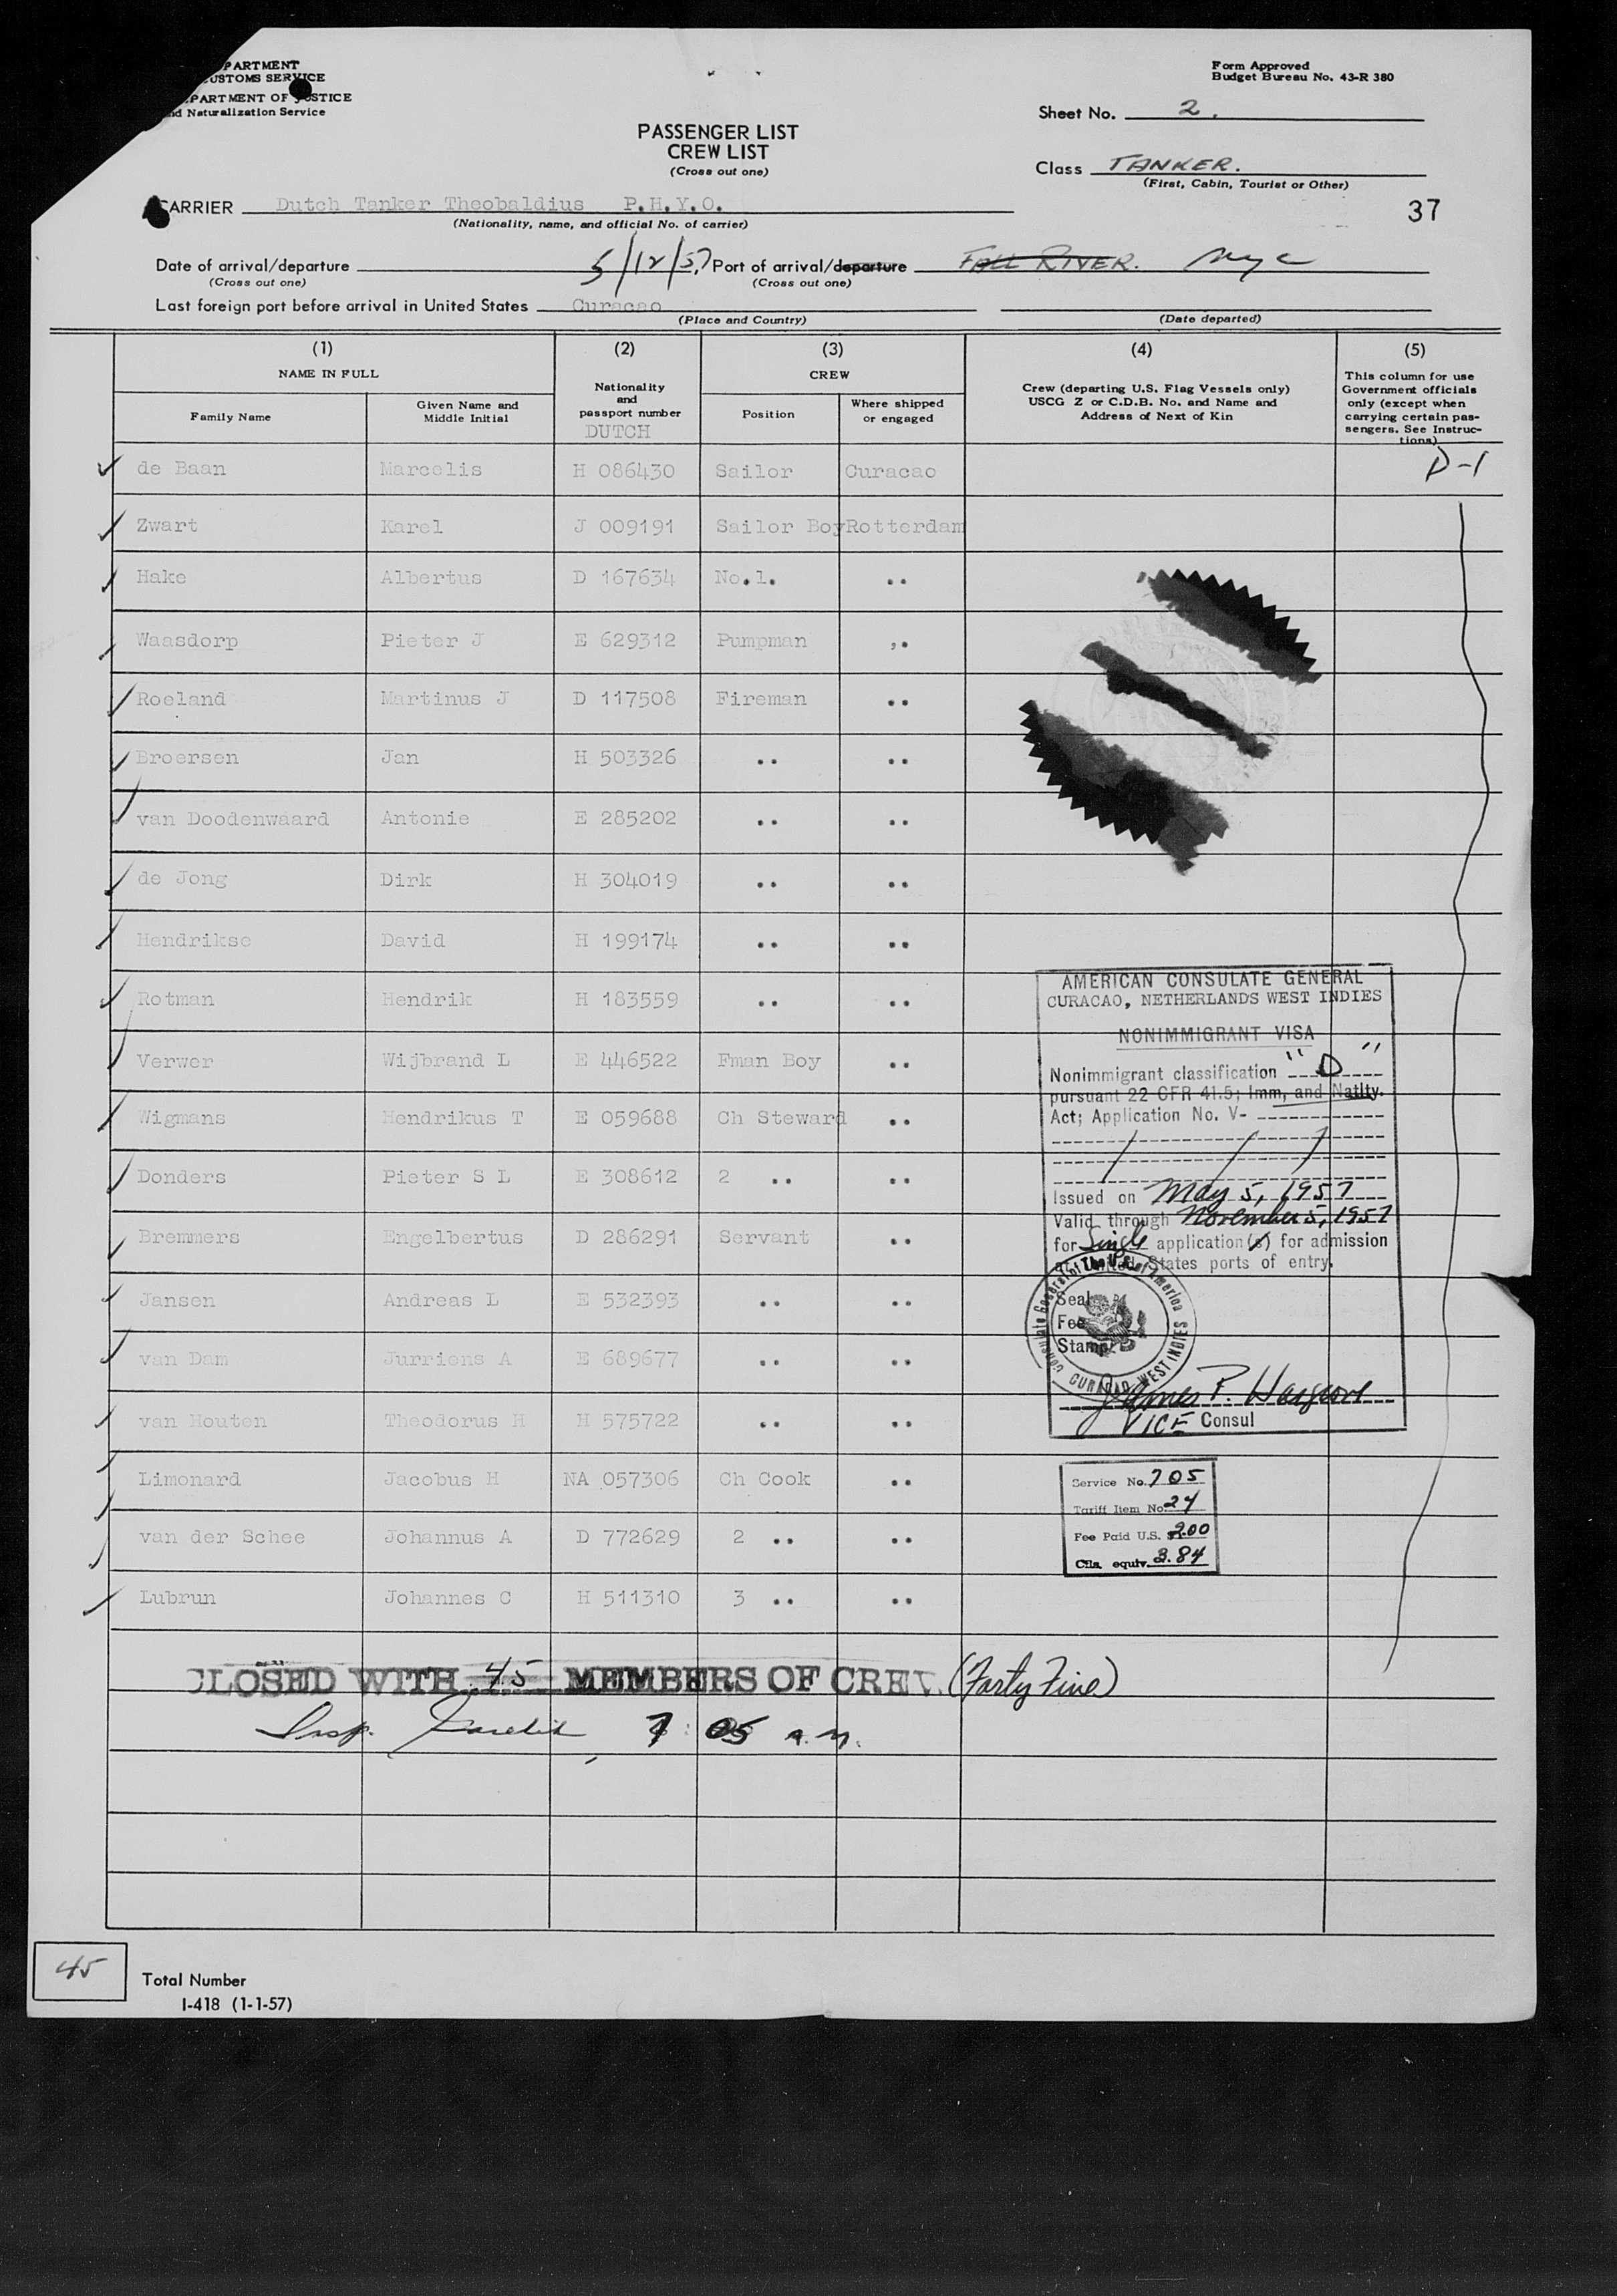 PARTMENT
CUSTOMS SERVICE
PARTMENT OF JUSTICE
and Naturalization Service
Form Approved
Budget Bureau No. 43-R 380
Sheet No. 2.
PASSENGER LIST
CREW LIST
(Cross out one)
Class TANKER.
(First, Cabin, Tourist or Other)
CARRIER Dutch Tanker Theobaldius P.H.Y.O.
(Nationality, name, and official No. of carrier)
37
Date of arrival/departure 5/12/57 Port of arrival/departure FALL RIVER. NYC
(Cross out one) (Cross out one)
Last foreign port before arrival in United States Curacao
(Place and Country) (Date departed)
(1) (2) (3) (4) (5)
NAME IN FULL
Family Name
Given Name and Middle Initial
Nationality and passport number
DUTCH
CREW
Position
Where shipped or engaged
Crew (departing U.S. Flag Vessels only)
USCG Z or C.D.B. No. and Name and
Address of Next of Kin
This column for use
Government officials
only (except when
carrying certain pas-
sengers. See Instruc-
tions)
de Baan Marcelis H 086430 Sailor Curacao D-1
Zwart Karel J 009191 Sailor Boy Rotterdam
Hake Albertus D 167634 No.1. ..
Waasdorp Pieter J E 629312 Pumpman ,.
Roeland Martinus J D 117508 Fireman ..
Broersen Jan H 503326 .. ..
van Doodenwaard Antonie E 285202 .. ..
de Jong Dirk H 304019 .. ..
Hendrikse David H 199174 .. ..
Rotman Hendrik H 183559 .. ..
Verwer Wijbrand L E 446522 Fman Boy ..
Wigmans Hendrikus T E 059688 Ch Steward ..
Donders Pieter S L E 308612 2 .. ..
Bremmers Engelbertus D 286291 Servant ..
Jansen Andreas L E 532393 .. ..
van Dam Jurriens A E 689677 .. ..
van Houten Theodorus H H 575722 .. ..
Limonard Jacobus H NA 057306 Ch Cook ..
van der Schee Johannus A D 772629 2 .. ..
Lubrun Johannes C H 511310 3 .. ..
AMERICAN CONSULATE GENERAL
CURACAO, NETHERLANDS WEST INDIES
NONIMMIGRANT VISA
Nonimmigrant classification "D"
pursuant 22 CFR 41.5; Imm, and Natlty.
Act; Application No. V-
Issued on May 5, 1957
Valid through November 5, 1957
for Single application(s) for admission
at United States ports of entry.
Seal
Fee
Stamp
Consulate General of The U.S. of America
CURACAO, WEST INDIES
James P. Hargrove
VICE Consul
Service No. 705
Tariff Item No. 24
Fee Paid U.S. $2.00
Cfls. equiv. 3.84
CLOSED WITH 45 MEMBERS OF CREW (Forty Five)
Insp. 7:05 A.M.
45
Total Number
I-418 (1-1-57)